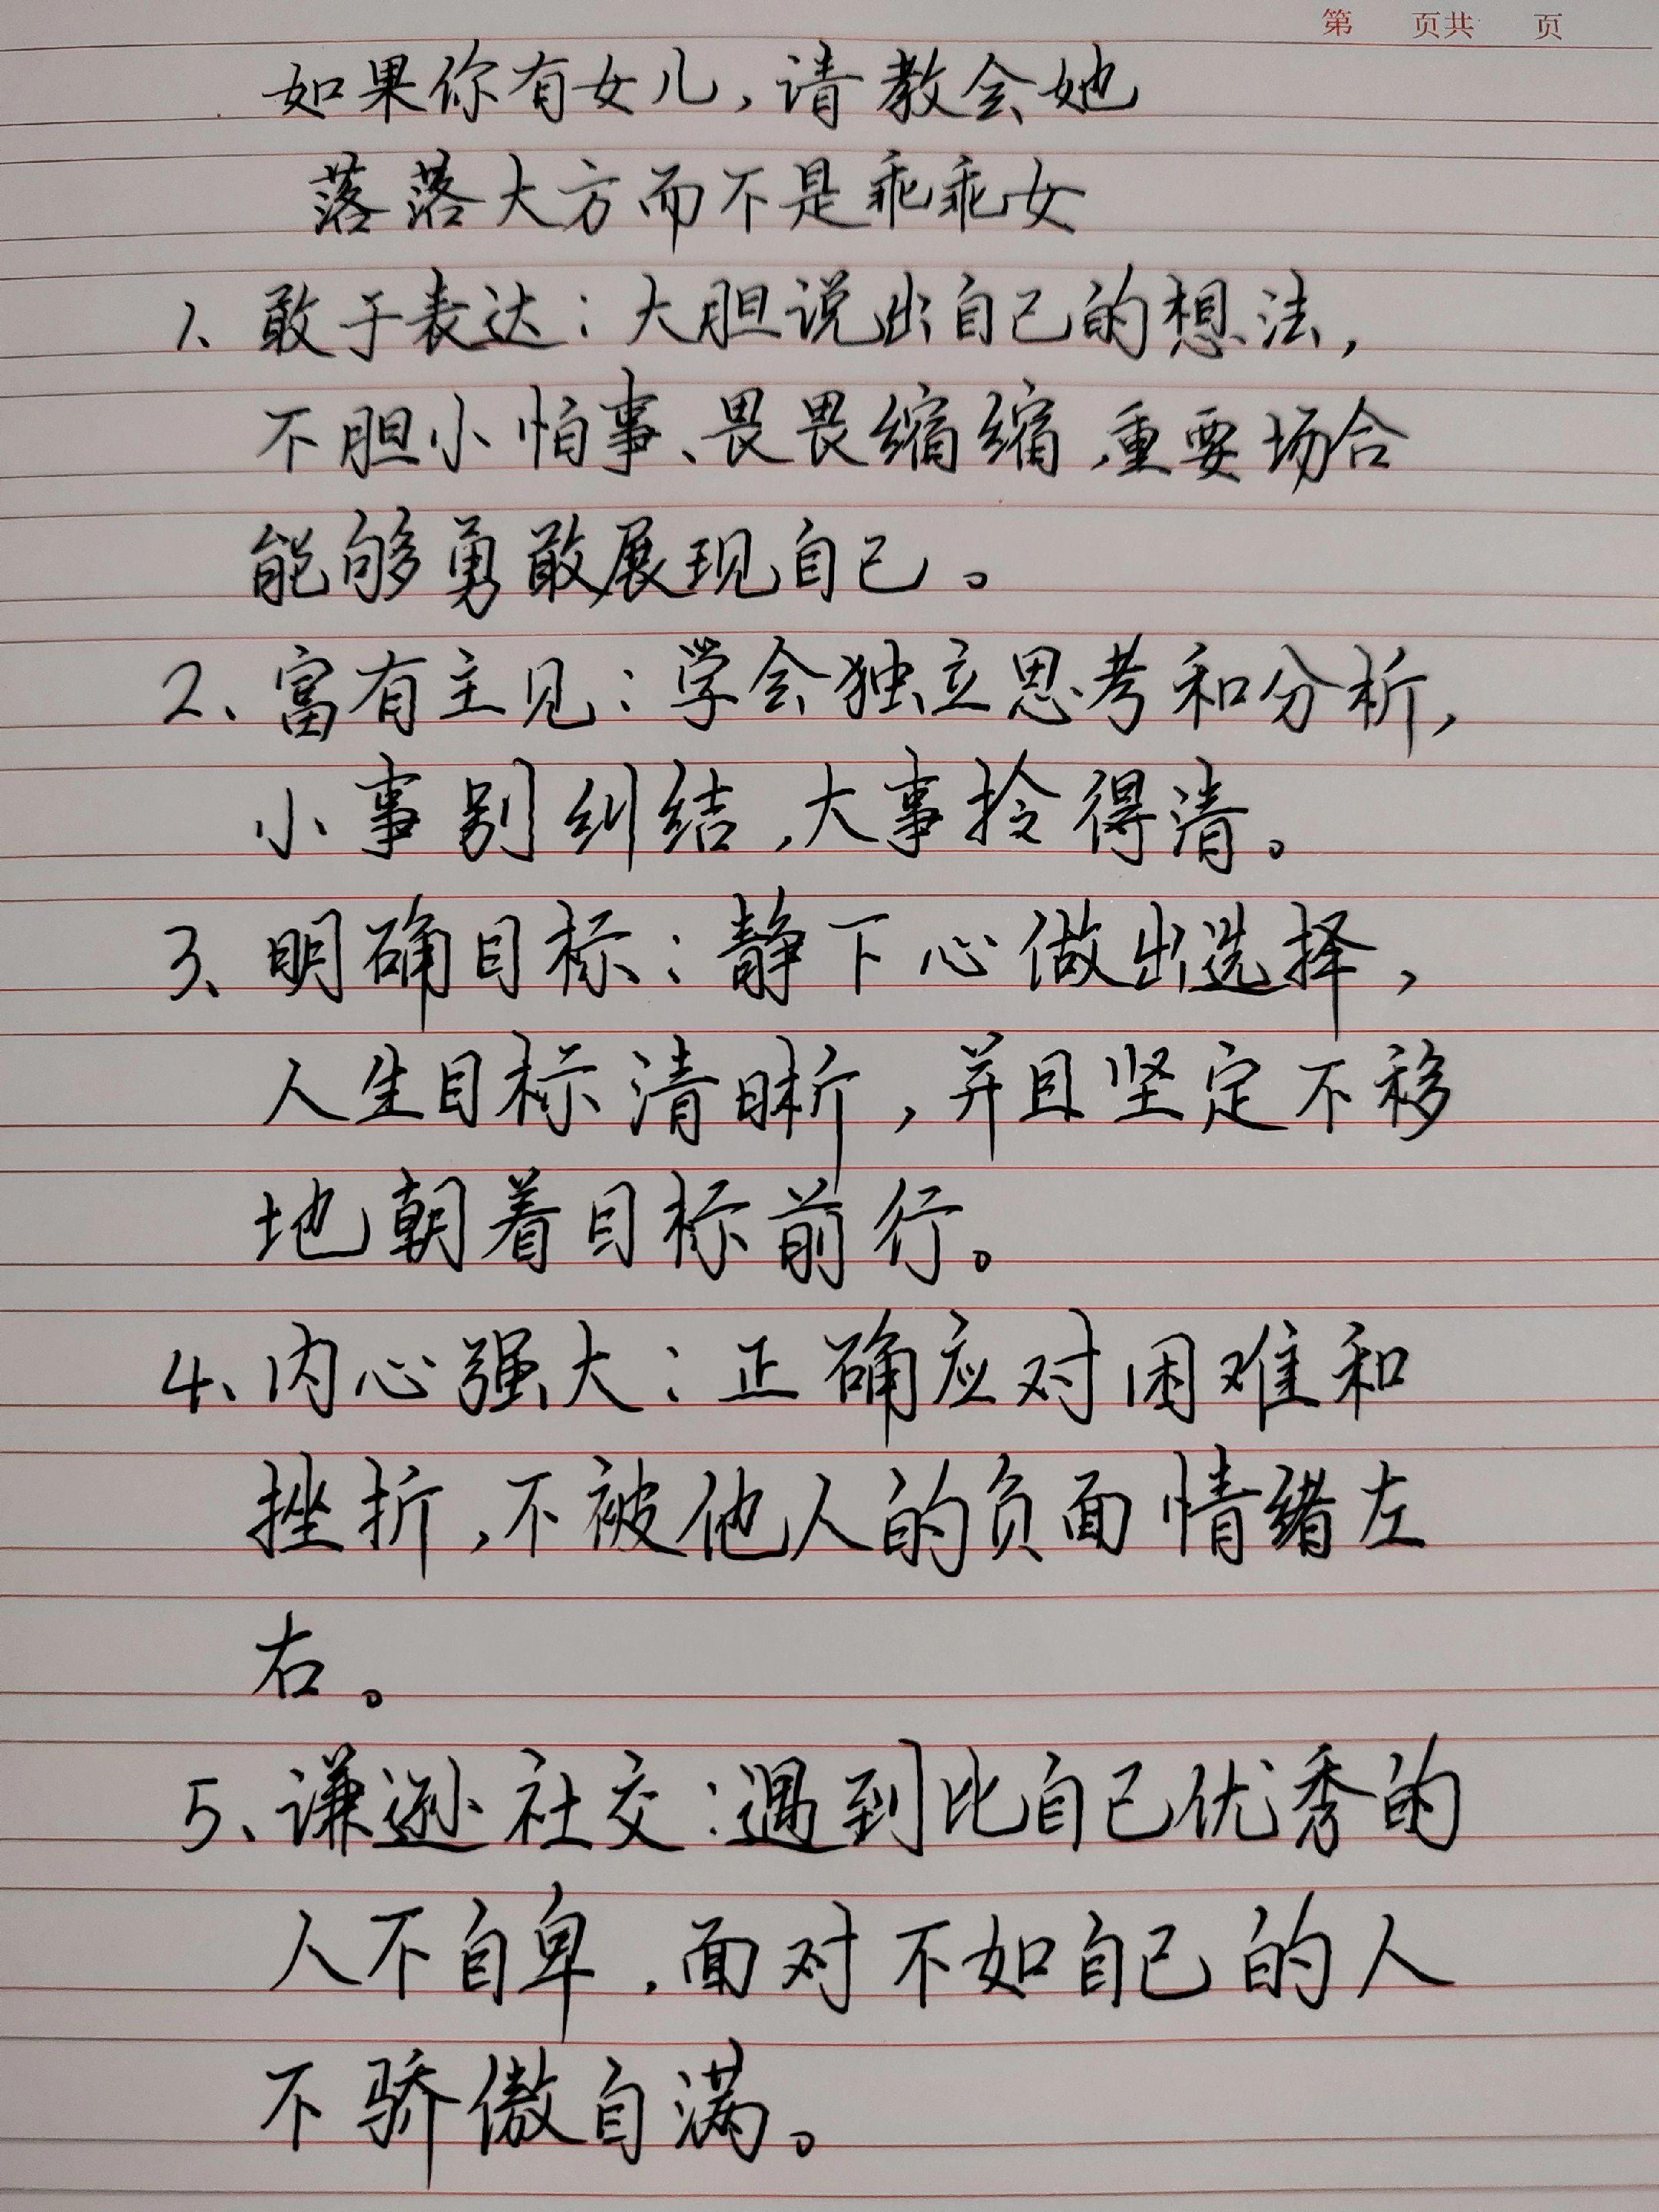 第 页共 页
如果你有女儿,请教会她
落落大方而不是乖乖女
1、敢于表达:大胆说出自己的想法,
不胆小怕事、畏畏缩缩,重要场合
能够勇敢展现自己。
2、富有主见:学会独立思考和分析,
小事别纠结,大事拎得清。
3、明确目标:静下心做出选择,
人生目标清晰,并且坚定不移
地朝着目标前行。
4、内心强大:正确应对困难和
挫折,不被他人的负面情绪左
右。
5、谦逊社交:遇到比自己优秀的
人不自卑,面对不如自己的人
不骄傲自满。